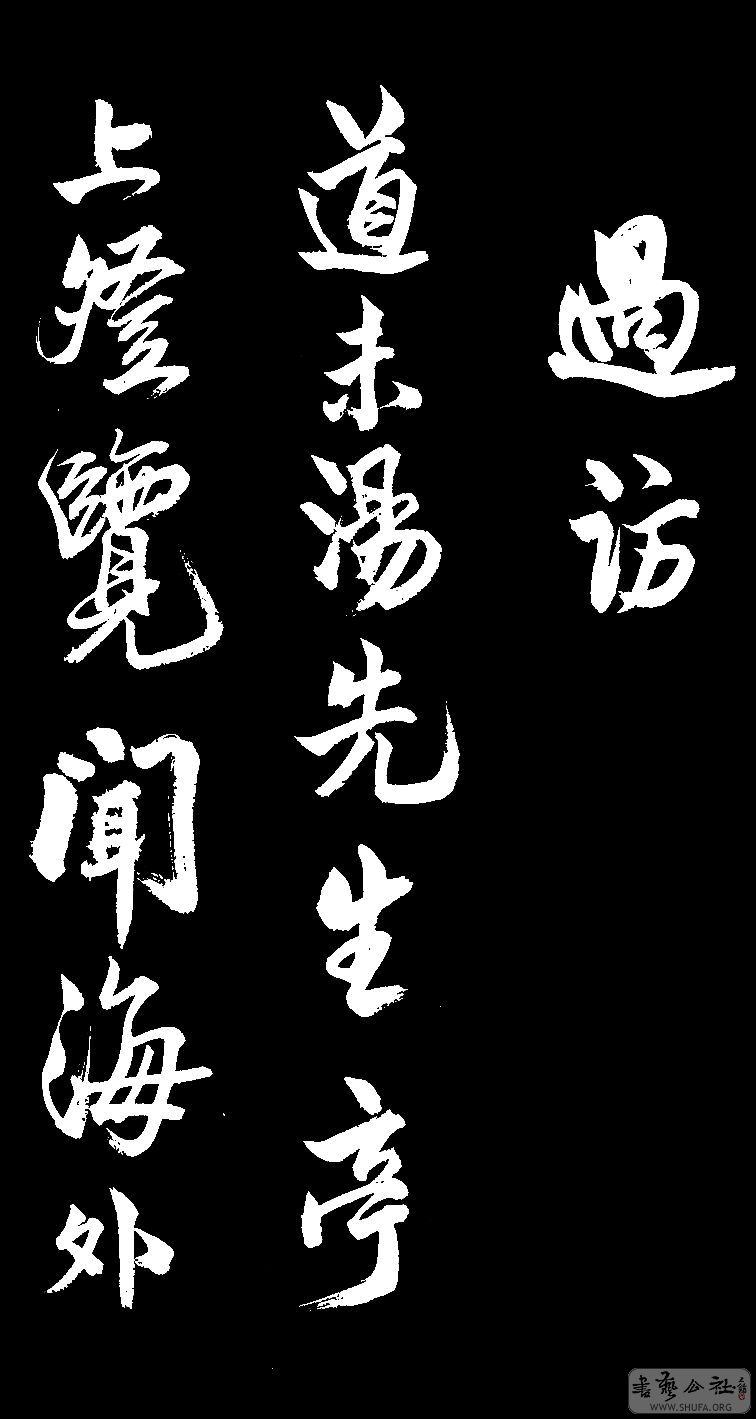 過訪
道未湯先生亭
上登覽聞海外
書藝公社
WWW.SHUFA.ORG